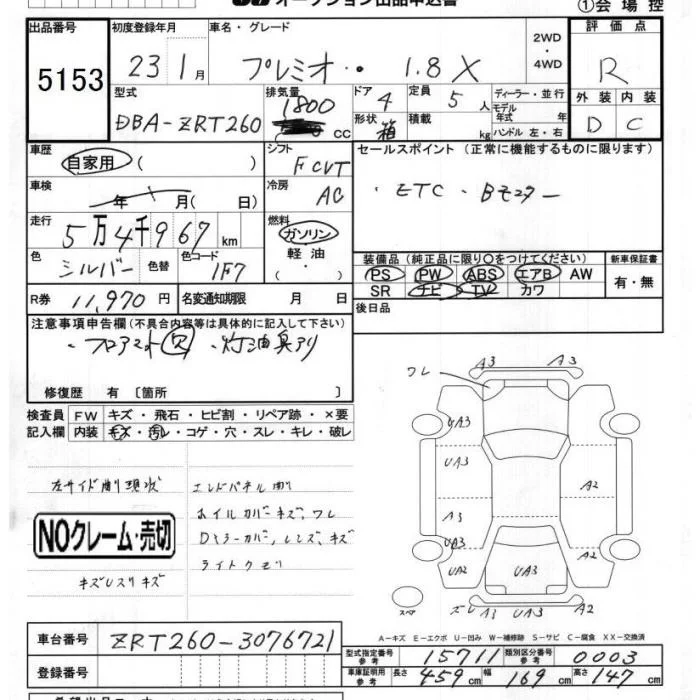 オークション出品申込書
①会場控
出品番号 初度登録年月 車名・グレード 2WD・4WD 評価点
5153 23 1月 プレミオ・・ 1.8X R
型式 排気量 ドア 定員 ディーラー・並行 外装 内装
DBA-ZRT260 1800 cc 4 5人 モデル年式 年 D C
形状 箱 積載 kg ハンドル 左・右
車歴 自家用( ) シフト FCVT セールスポイント(正常に機能するものに限ります)
車検 年 月( 日) 冷房 AC ・ETC ・Bモニター
走行 5万4千967km 燃料 ガソリン
軽油
・( )
色 シルバー 色替 色コード 1F7
装備品(純正品に限り○をつけてください) 新車保証書
PS PW ABS エアB AW 有・無
SR ナビ TV カワ
R券 11,970円 名変通知期限 月 日 後日品
注意事項申告欄(不具合内容等は具体的に記入して下さい)
・フロアマット欠 ・灯油臭アリ
修復歴 有〔箇所 〕
検査員 FW キズ・飛石・ヒビ割・リペア跡・×要
記入欄 内装 キズ・汚レ・コゲ・穴・スレ・キレ・破レ
ワレ A3 A3
UA3
UA3 A2
A3
A3 A2
UA2 UA3
スペア A3 UA3 A2
左サイド曲り現状 エンドパネル曲り
ホイルカバーキズ、ワレ
NOクレーム・売切
Dミラーカバー、レンズ、キズ
キズUスリキズ ライトクモリ
A－キズ E－エクボ U－凹み W－補修跡 S－サビ C－腐食 XX－交換済
車台番号 ZRT260-3076721
型式指定番号 参考 15711 類別区分番号 参考 0003
登録番号 車庫証明用 参考 長さ 459cm 幅 169cm 高さ 147cm